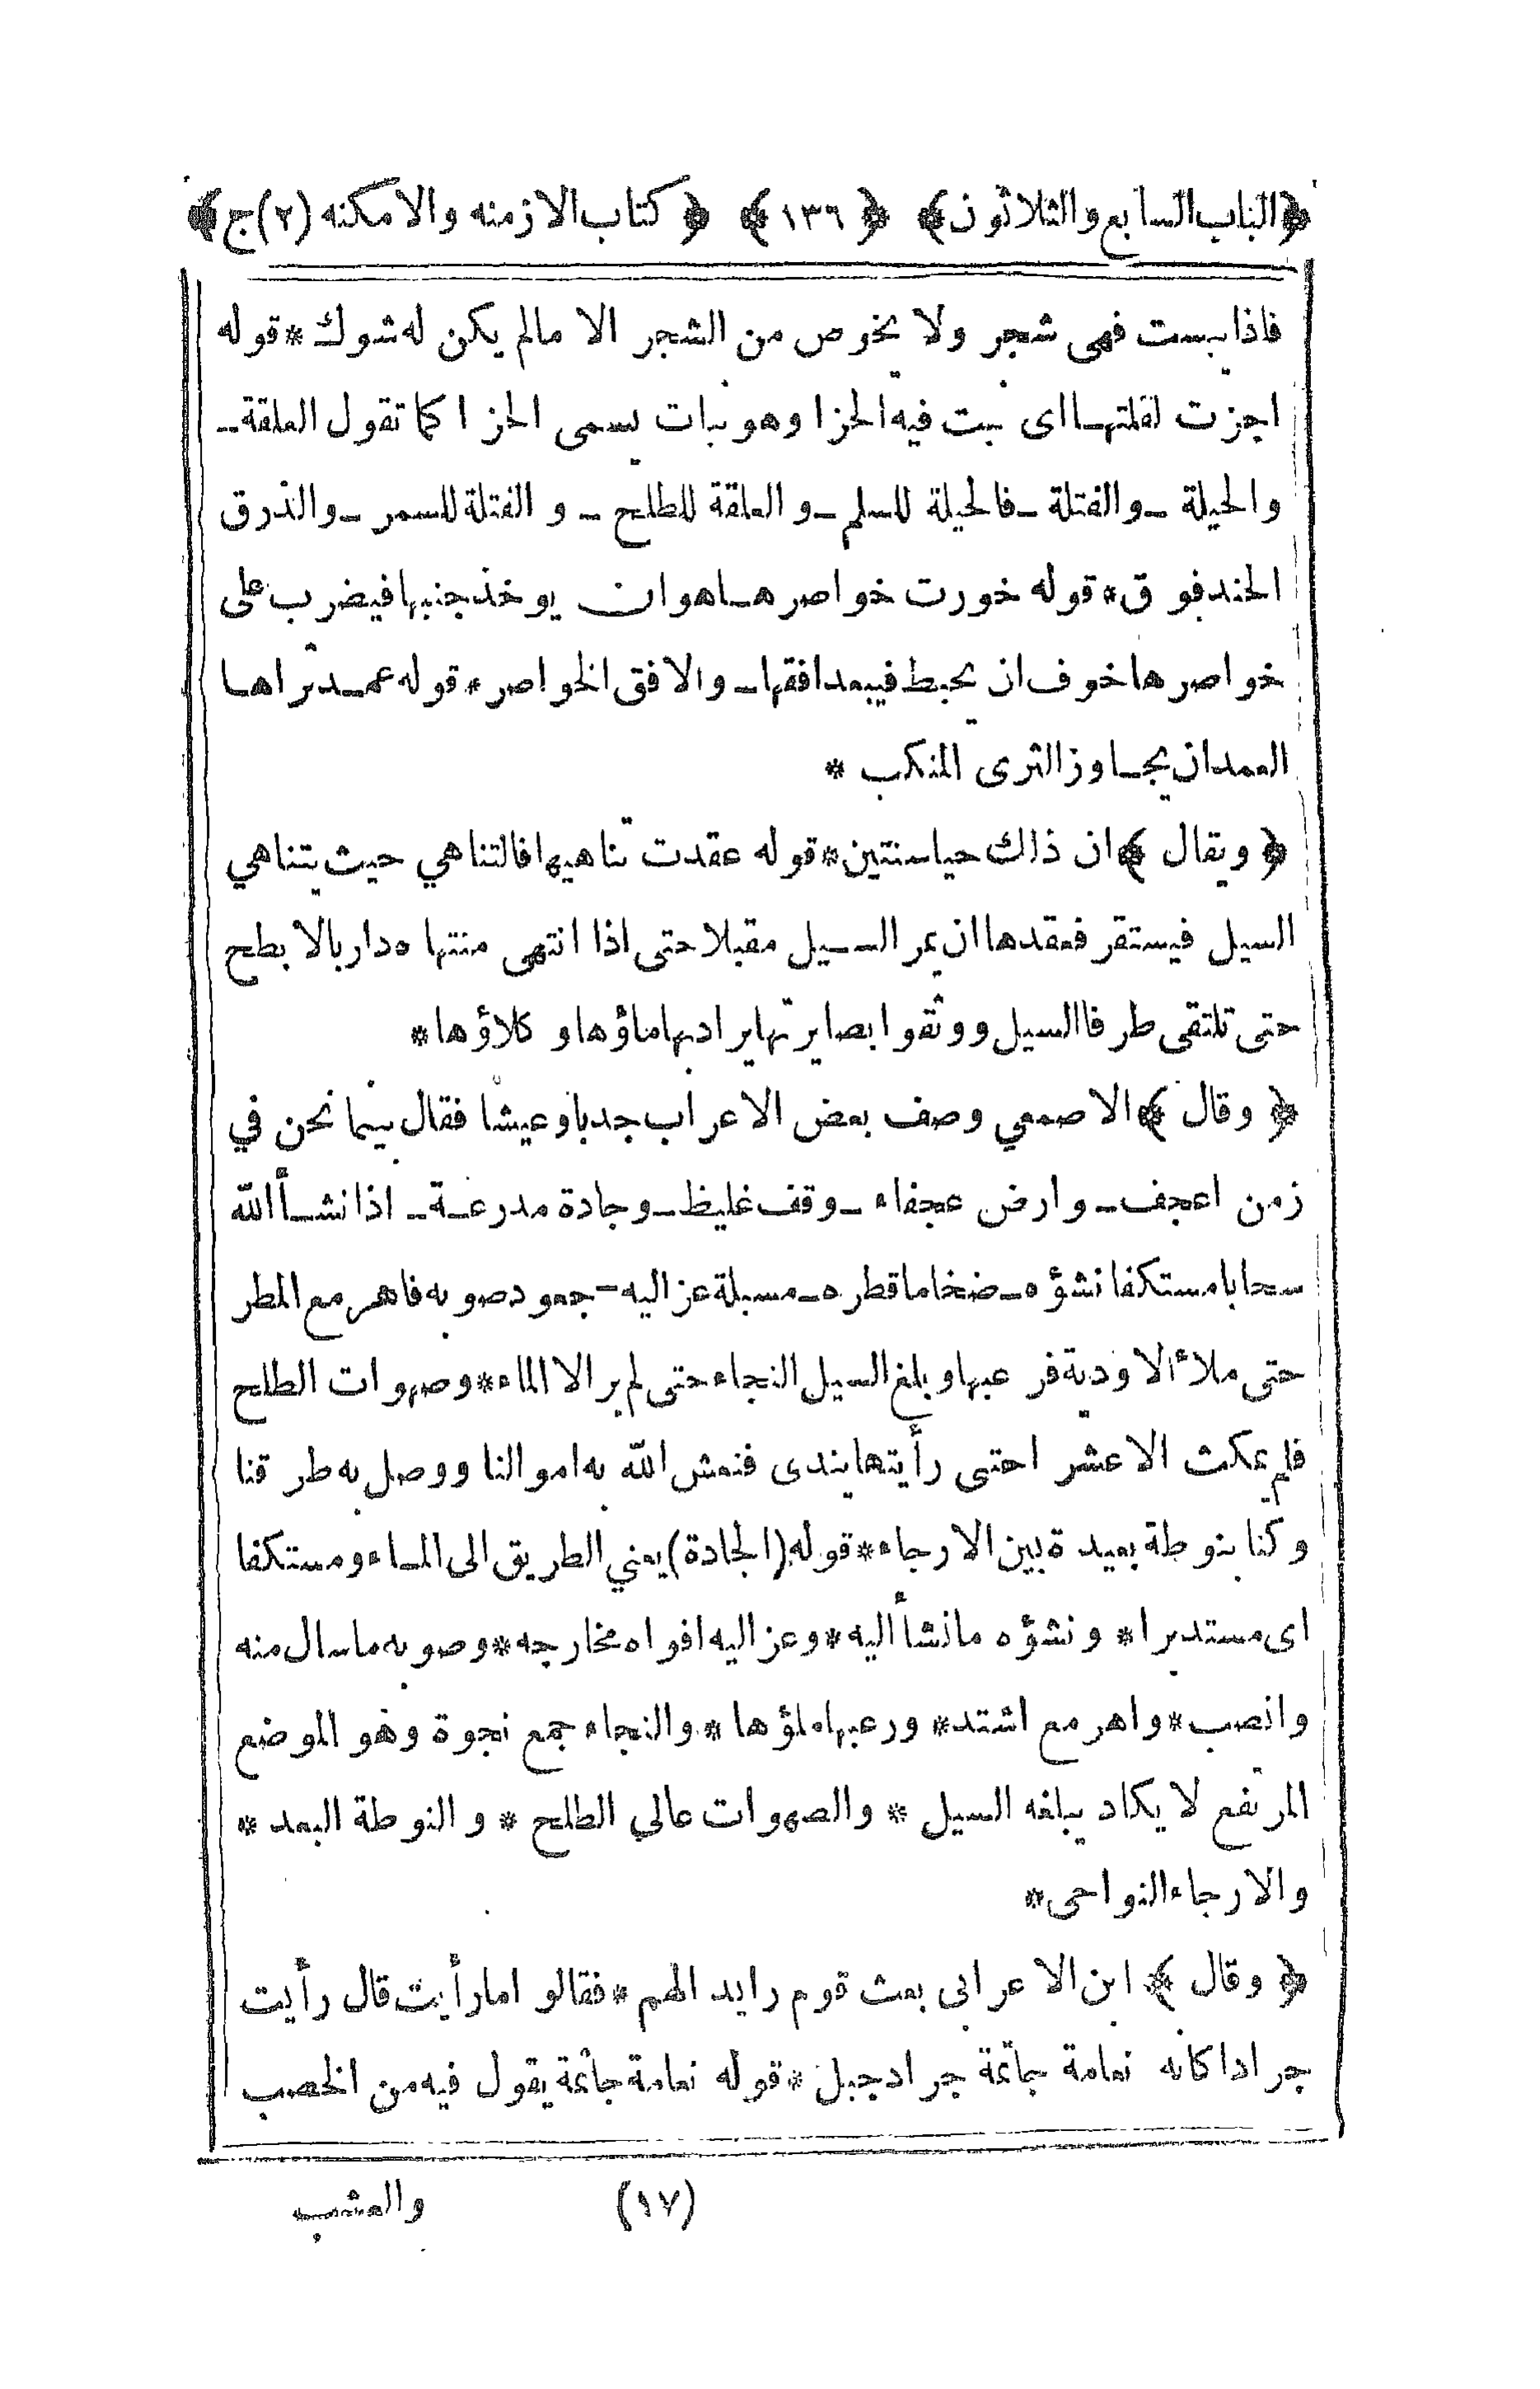 ﴿الباب السابع والثلاثون﴾ ﴿١٣٦﴾ ﴿كتاب الازمنه والامكنه (٢) ج﴾
فاذا يبست فهى شجر ولا يخوص من الشجر الا مالم يكن له شوك * قوله
اجزت لقلتها اى نبت فيه الحزا وهو نبات يسمى الحزا كما تقول العلقة ـ
والحيلة ـ والفتلة ـ فالحيلة للسلم ـ والعلقة للطلح ـ والفتلة للسمر ـ والذرق
الحندقوق * قوله خورت خواصرها هو ان يوخذ جنبها فيضرب على
خواصرها خوف ان يحبط فيبعد افقها ـ والافق الخواصر * قوله عمد ثراها
العمد ان يجاوز الثرى المنكب *
﴿ويقال﴾ ان ذالك حيا سنتين * قوله عقدت تناهيها فالتناهي حيث يتناهي
السيل فيستقر فعقدها ان يمر السيل مقبلا حتى اذا انتهى منتهاه دار بالابطح
حتى تلتقى طرفا السيل ووثقوا بصايرتها يراد بها ماؤها وكلاؤها *
﴿وقال﴾ الاصمعي وصف بعض الاعراب جدبا وعيشا فقال بينما نحن في
زمن اعجف ـ وارض عجفاء ـ وقف غليظ ـ وجادة مدرعة ـ اذا نشأ الله
سحابا مستكفا نشؤه ـ ضخاما قطره ـ مسبلة عزاليه ـ جمود صوبه فاهرمع المطر
حتى ملأ الاودية فرعبها وبلغ السيل النجاء حتى لم ير الا الماء * وصهوات الطلح
فلم يمكث الا عشرا حتى رأيتها يندى فنعش الله به اموالنا ووصل به طرقنا
وكنا بنوطة بعيدة بين الارجاء * قوله (الجادة) يعني الطريق الى الماء ومستكفا
اى مستديرا * ونشؤه ما نشأ اليه * وعزاليه افواه مخارجه * وصوبه ما سال منه
وانصب * واهرمع اشتد * ورعبها ملؤها * والنجاء جمع نجوة وهو الموضع
المرتفع لا يكاد يبلغه السيل * والصهوات عالي الطلح * والنوطة البعد *
والارجاء النواحى *
﴿وقال﴾ ابن الاعرابى بعث قوم رايد الهم * فقالوا ما رأيت قال رأيت
جرادا كانه نعامة جاثمة جراد جبل * قوله نعامة جاثمة يقول فيه من الخصب
(١٧) والعشب